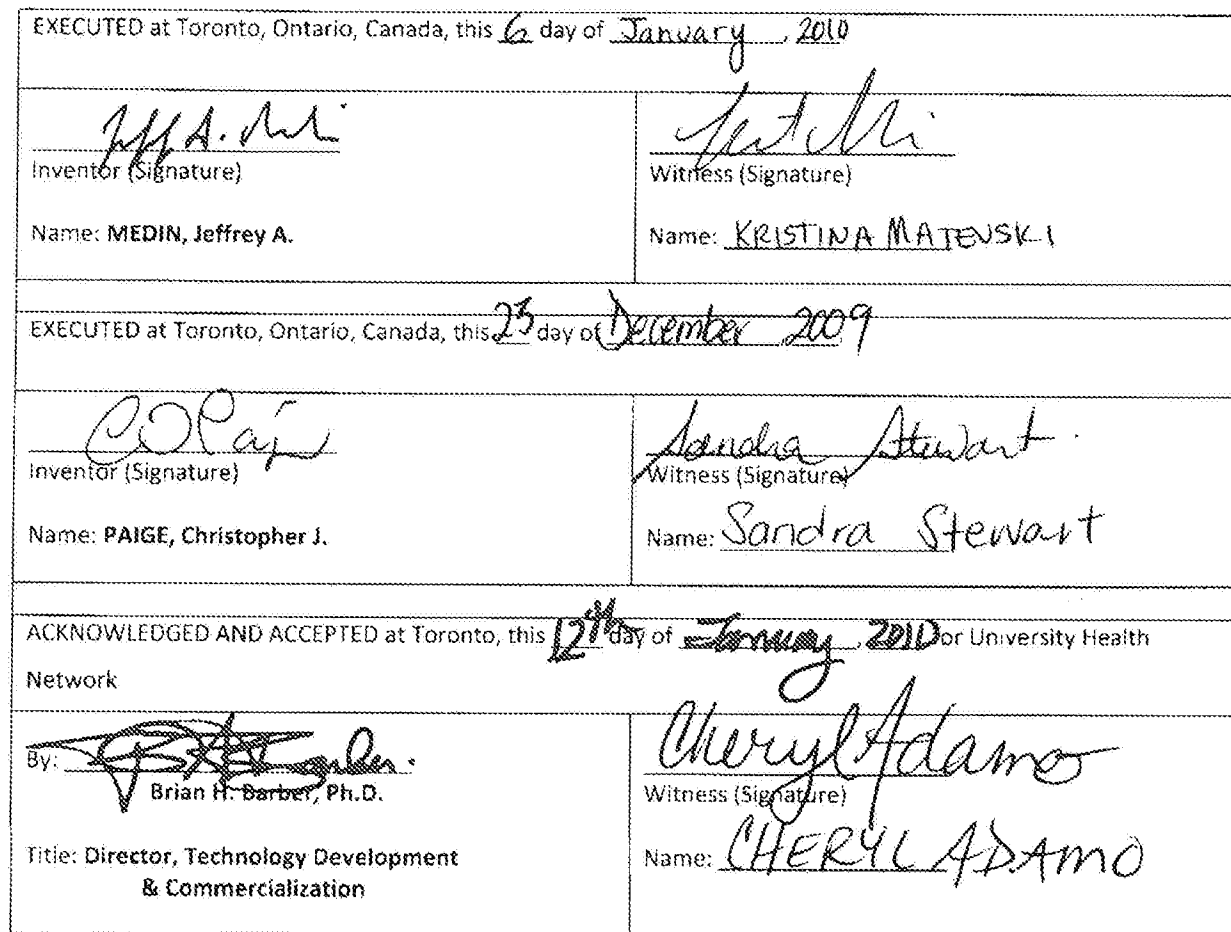 EXECUTED at Toronto, Ontario, Canada, this 6 day of January, 2010
Inventor (Signature)
Name: MEDIN, Jeffrey A.
Witness (Signature)
Name: KRISTINA MATEVSKI
EXECUTED at Toronto, Ontario, Canada, this 23 day of December 2009
Inventor (Signature)
Name: PAIGE, Christopher J.
Sandra Stewart
Witness (Signature)
Name: Sandra Stewart
ACKNOWLEDGED AND ACCEPTED at Toronto, this 12th day of January, 2010 or University Health
Network
By:
Brian H. Barber, Ph.D.
Title: Director, Technology Development
& Commercialization
Cheryl Adamo
Witness (Signature)
Name: CHERYL ADAMO